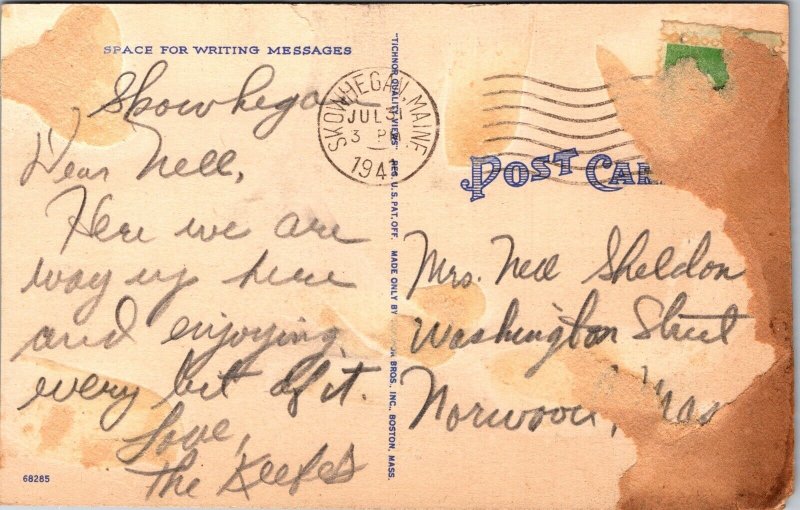 SPACE FOR WRITING MESSAGES
Skowhegan
Dear Nell,
Here we are
way up here
and enjoying
every bit of it.
Love,
The Keefes
68285
"TICHNOR QUALITY VIEWS" REG. U.S. PAT. OFF. MADE ONLY BY BROS. INC., BOSTON, MASS.
SKOWHEGAN, MAINE
JUL 31
3 P
194
POST CAR
Mrs. Nell Sheldon
Washington Street
Norwood, Mas